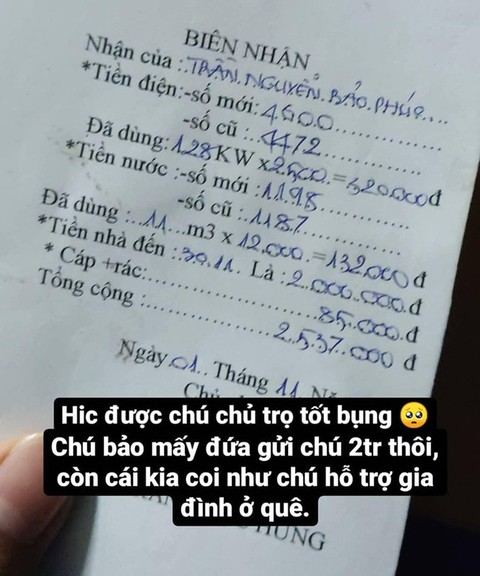 BIÊN NHẬN
Nhận của :.TRẦN.NGUYỄN.BẢO.PHÚC...
*Tiền điện:-số mới: 4600
-số cũ :..4472
Đã dùng:128KW x2500.=320.000đ
*Tiền nước :-số mới :1198
-số cũ :..1187
Đã dùng:...11...m3 x 12.000.=132.000 đ
*Tiền nhà đến :.30.11.. Là : 2.000.000.đ
* Cáp +rác:...85.000.đ
Tổng cộng :...2.537.000 đ
Ngày.01.. Tháng 11
Hic được chú chủ trọ tốt bụng 🥺
Chú bảo mấy đứa gửi chú 2tr thôi,
còn cái kia coi như chú hỗ trợ gia
đình ở quê.
HÙNG